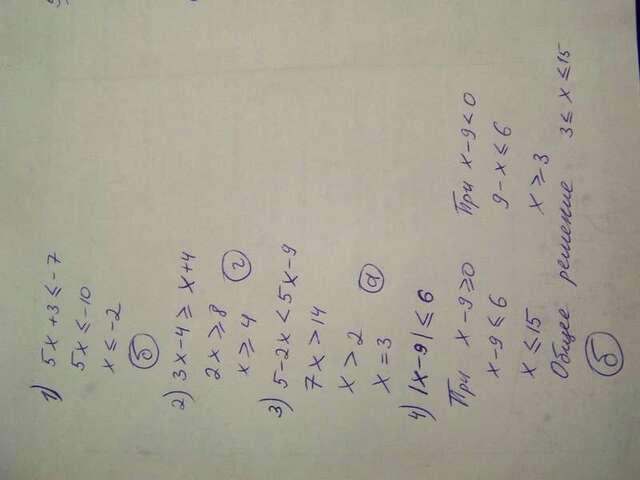 1) 5x+3≤-7
5x≤-10
x≤-2
б
2) 3x-4≥x+4
2x≥8
x≥4
г
3) 5-2x<5x-9
7x>14
x>2
x=3
а
4) |x-9|≤6
При x-9≥0 При x-9<0
x-9≤6 9-x≤6
x≤15 x≥3
Общее решение 3≤x≤15
б